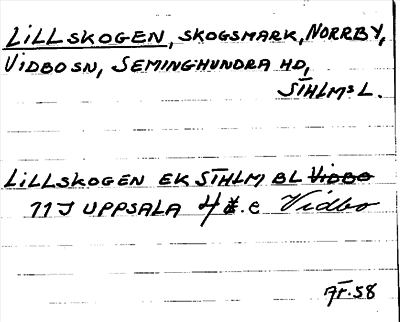 LILLSKOGEN, SKOGSMARK, NORRBY,
VIDBO SN, SEMINGHUNDRA HD,
STHLMS L.
LILLSKOGEN EK STHLM BL VIDBO
11 J UPPSALA 4 .c Vidbo
ÄF.58